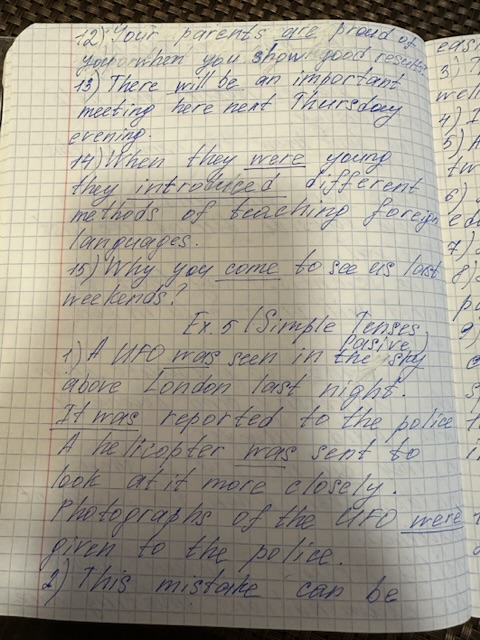 12) Your parents are proud of
you when you show good results.
13) There will be an important
meeting here next Thursday
evening.
14) When they were young
they introduced different
methods of teaching foreign
languages.
15) Why you come to see us last
weekends?
Ex. 5 (Simple Tenses
Pasive)
1) A UFO was seen in the sky
above London last night.
It was reported to the police
A helicopter was sent to
look at it more closely.
Photographs of the UFO were
given to the police.
2) This mistake can be
3)
4) I
5) A
6)
7)
8)
9)